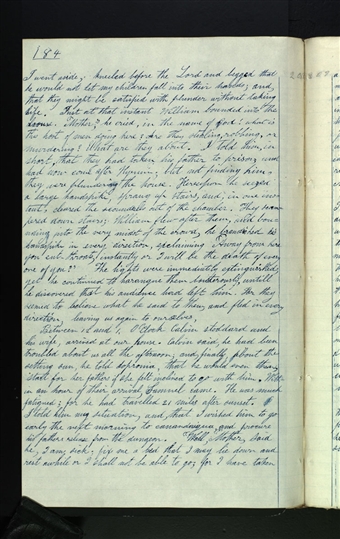 184
I went aside, kneeled before the Lord and begged that
he would not let my children fall into their hands; and,
that they might be satisfied with plunder without taking
life. Just at that instant William bounded into the
house. Mother, he cried, in the name of God! what is
the host of men doing here? Are they stealing, robbing, or
murdering? What are they about. I told him, in
short, that they had taken his father to prison, and
had now come after Hyrum; but not finding him,
they were plundering the house. Hereupon he seized
a large handspike, sprang up stairs, and, in one ins-
tant, cleared the scoundrels out of the chamber. They scam-
pered down stairs; William flew after them, and boun-
ding into the very midst of the crowd, he brandished his
handspike in every direction, exclaiming "Away from here
you cut-throats, instantly or I will be the death of every
one of you?" The lights were immediately extinguished;
yet he continued to harangue them boisterously, until
he discovered that his audience had left him. For they
seemed to believe what he said to them, and fled in every
direction, leaving us again to ourselves.
Between 12 and 1, O'clock Calvin Stoddard and
his wife, arrived at our house. Calvin said, he had been
troubled about us all the afternoon, and, finally, about the
setting sun, he told Sophronia, that he would even then,
start for her father's if she felt inclined to go with him. With-
in an hour of their arrival, Samuel came. He was much
fatigued; for he had travelled 21 miles after sunset.
I told him my situation, and, that I wished him to go
early the next morning to Canandaigua, and procure
his father's release from the dungeon. "Well, Mother, said
he, I am sick; fix me a bed that I may lie down and
rest awhile or I shall not be able to go; for I have taken